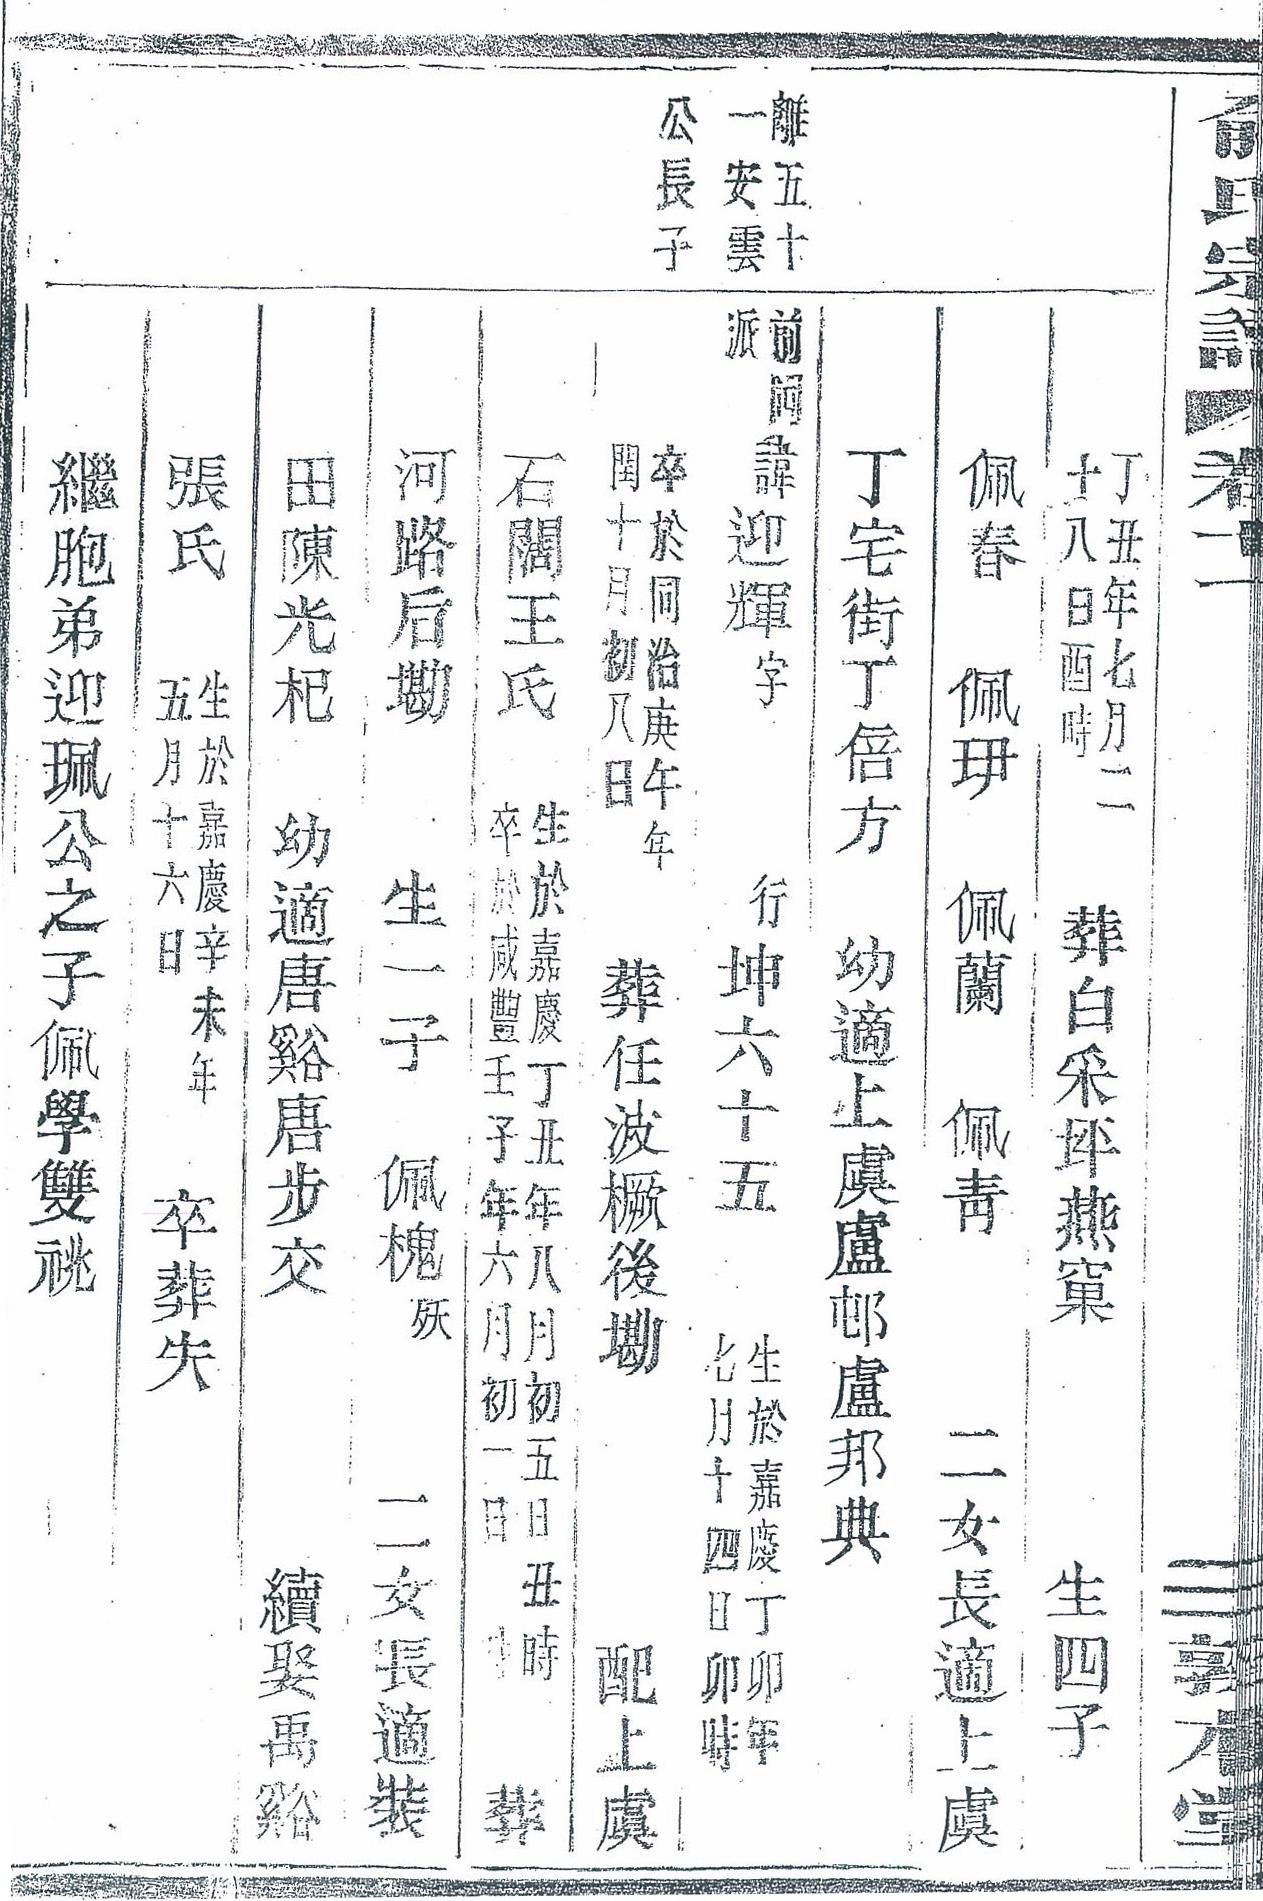 俞氏宗譜
卷二
敦本堂
丁丑年七月二
十八日酉時
葬白采坪燕窠 生四子
佩春 佩玡 佩蘭 佩青 二女長適上虞
丁宅街丁倍方 幼適上虞盧邨盧邦典
離五十
一安雲
公長子
前岡
派
諱迎輝字 行坤六十五
生於嘉慶丁卯年
七月十四日卯時
卒於同治庚午年
閏十月初八日
葬任波橛後墈 配上虞
石闊王氏
生於嘉慶丁丑年八月初五日丑時
卒於咸豐壬子年六月初一日
葬
河路后墈 生一子 佩槐殀 二女長適裝
田陳光杞 幼適唐谿唐步交 續娶禹谿
張氏
生於嘉慶辛未年
五月十六日
卒葬失
繼胞弟迎珮公之子佩學雙祧